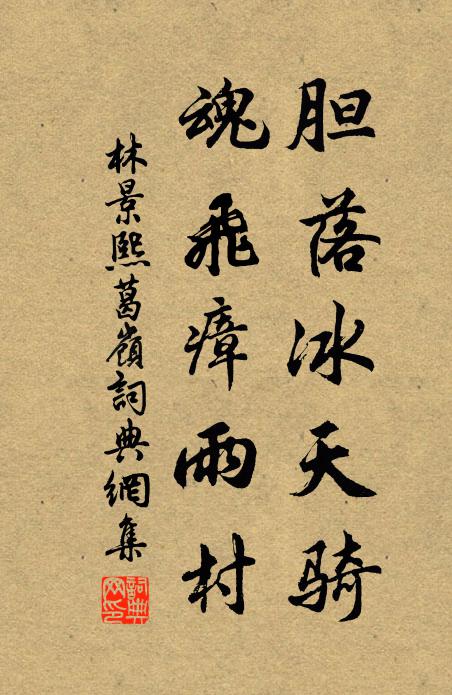 胆落冰天骑
魂飛瘴雨村
林景熙葛嶺詞典網集
詞典网印